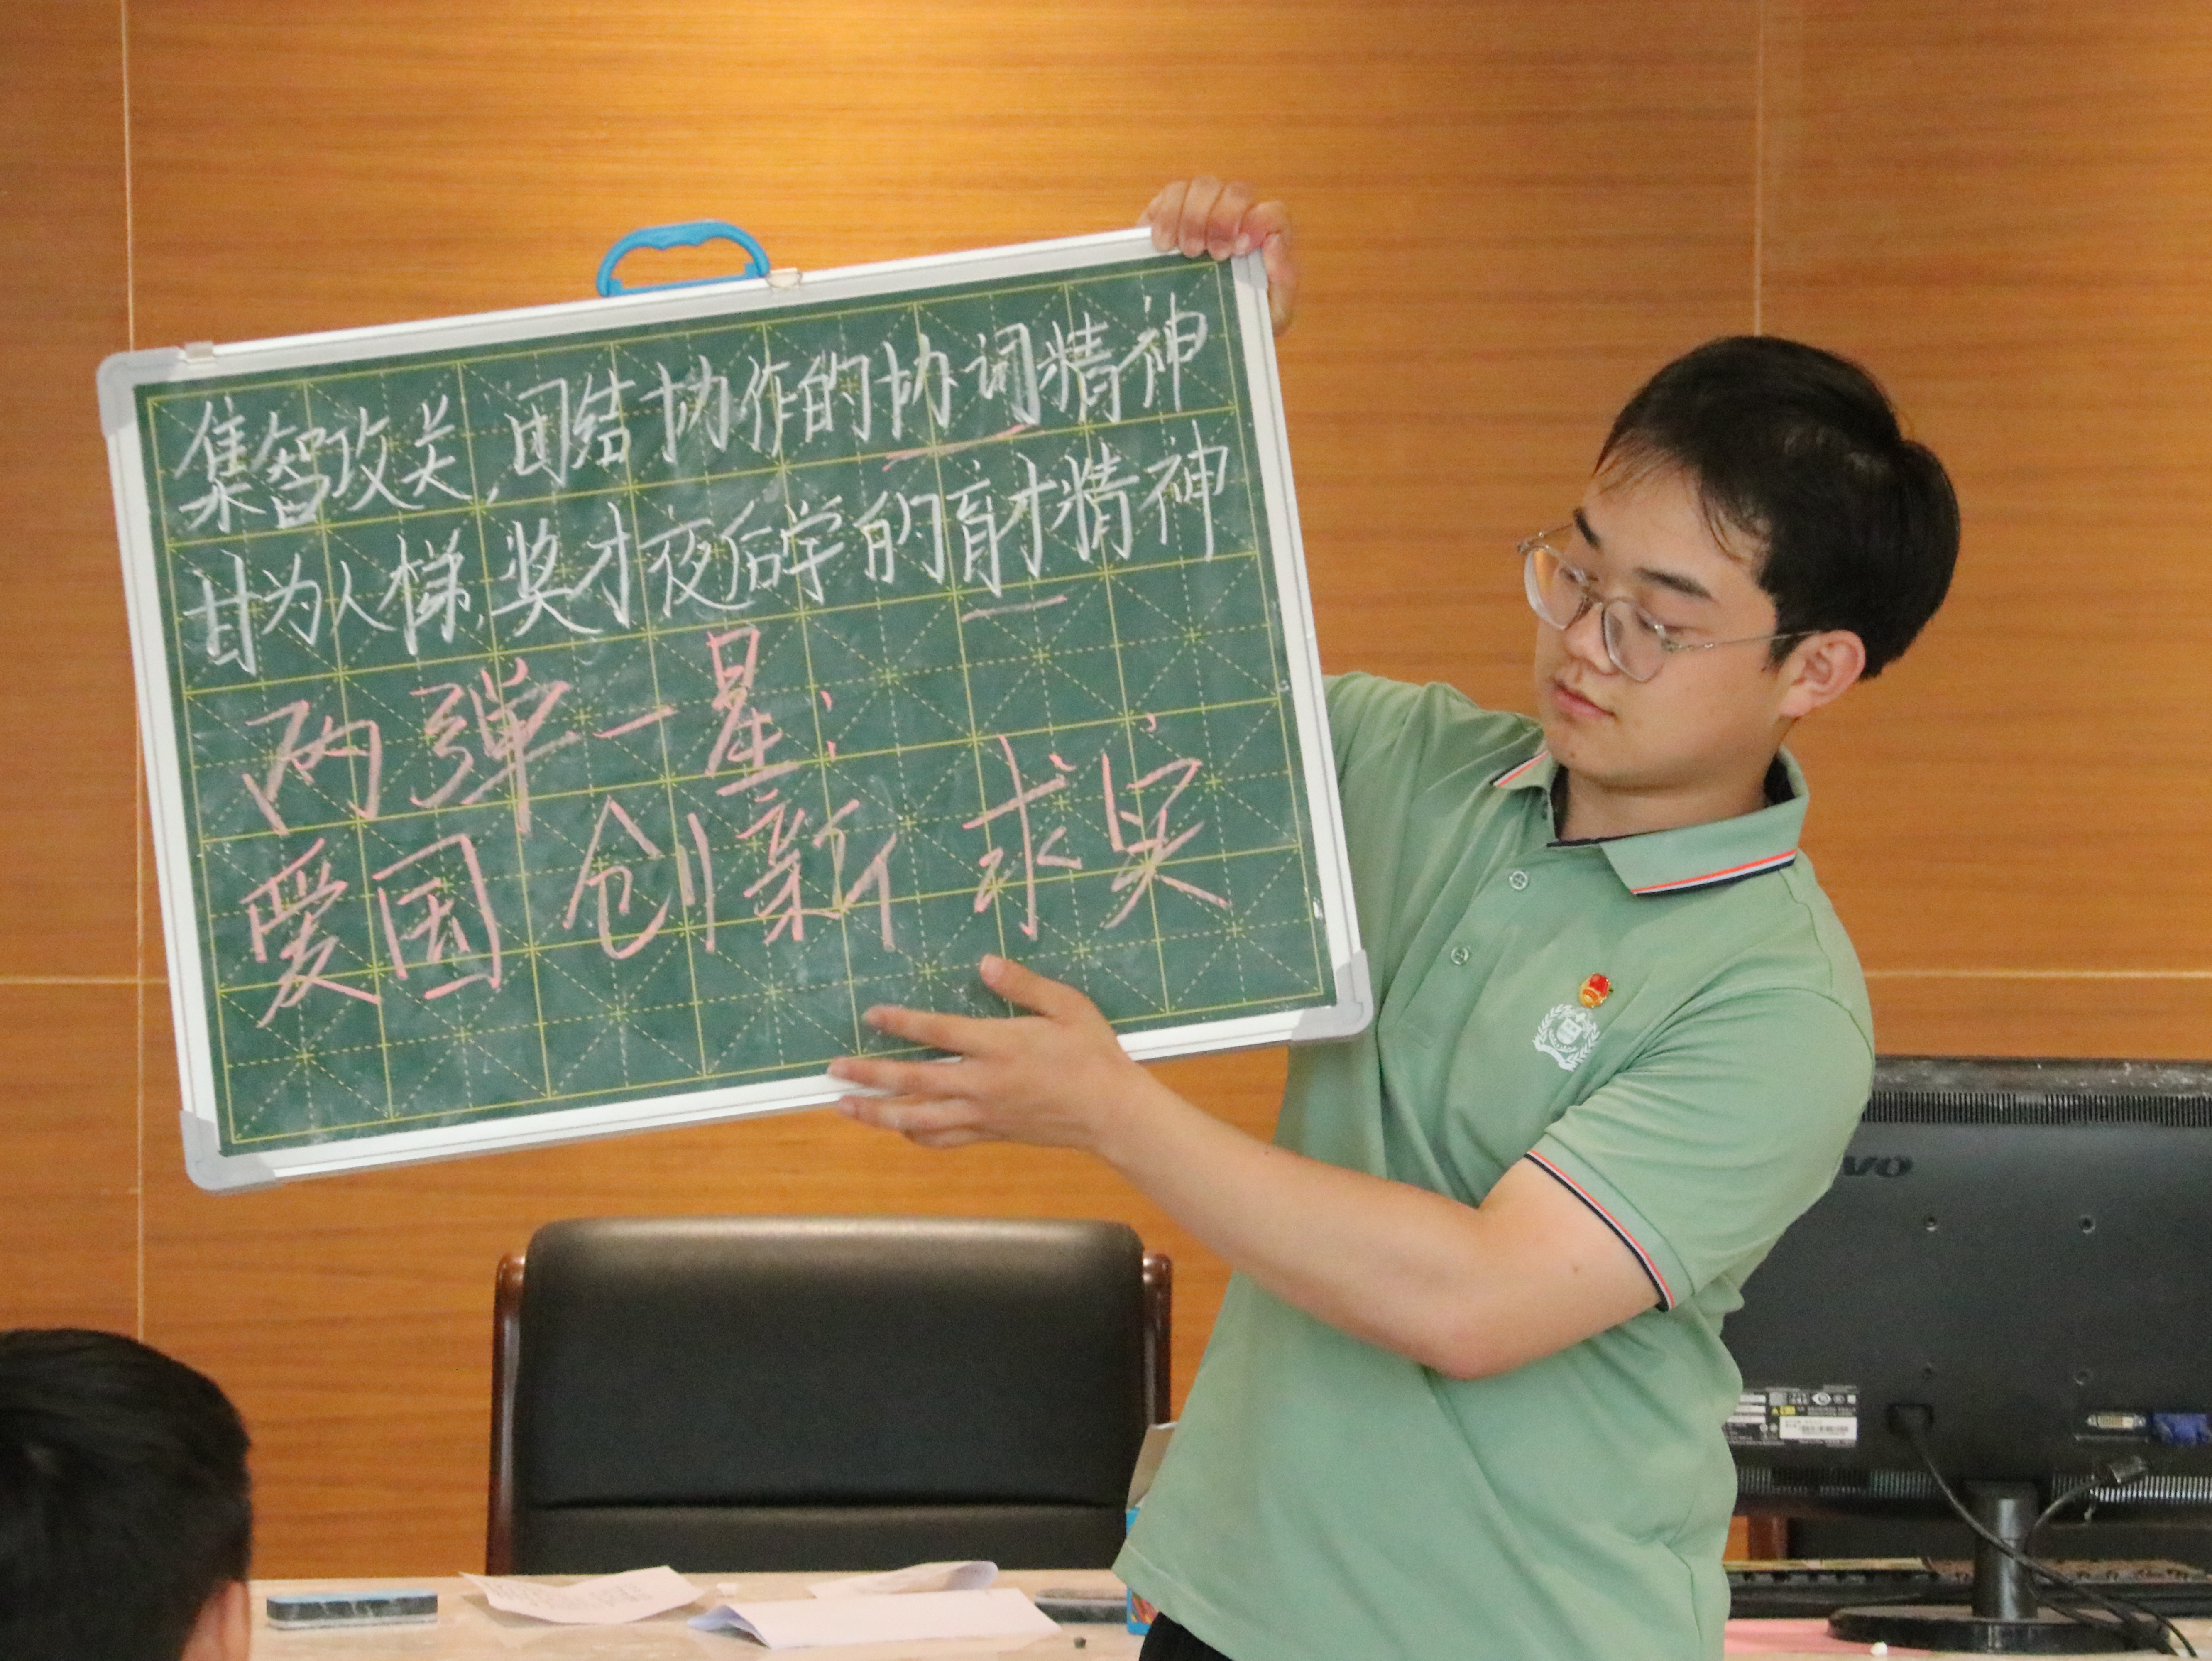 集智攻关,团结协作的协词精神
甘为人梯,奖才夜后学的育才精神
两弹一星:
爱国 创新 求实
VO